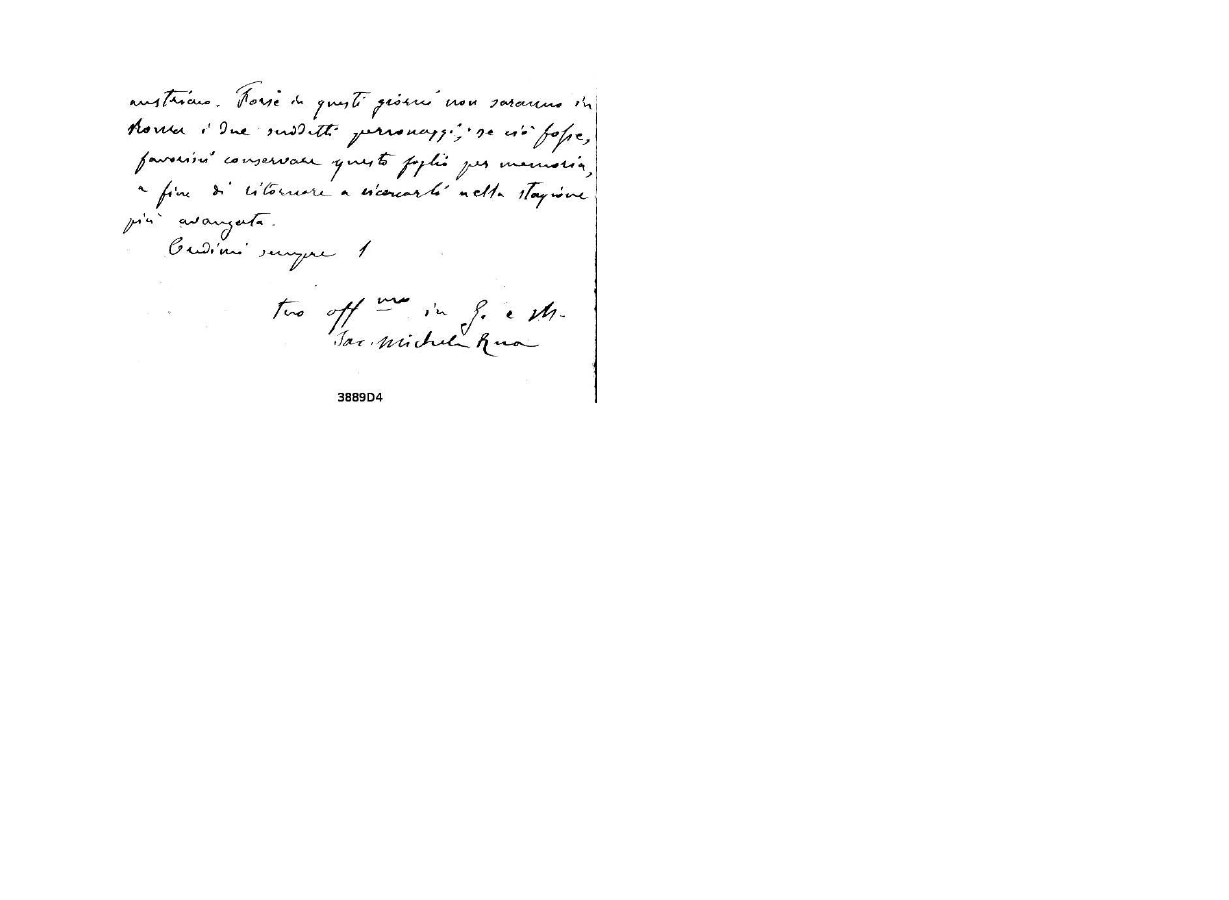 austriaco. Forse in questi giorni non saranno in
Roma i due suddetti personaggi; se ciò fosse,
favorisci conservare questo foglio per memoria,
a fine di ritornare a ricercarli nella stagione
più avanzata.
Credimi sempre
tuo aff mo in G. e M.
Sac. Michele Rua
3889D4